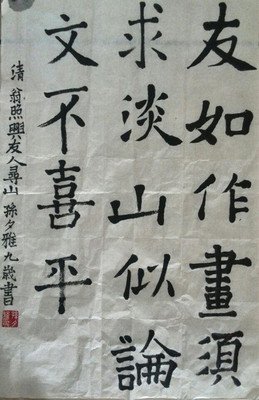 友如作畫須
求淡山似論
文不喜平
清 翁照與友人尋山 孫夕雅九歲書